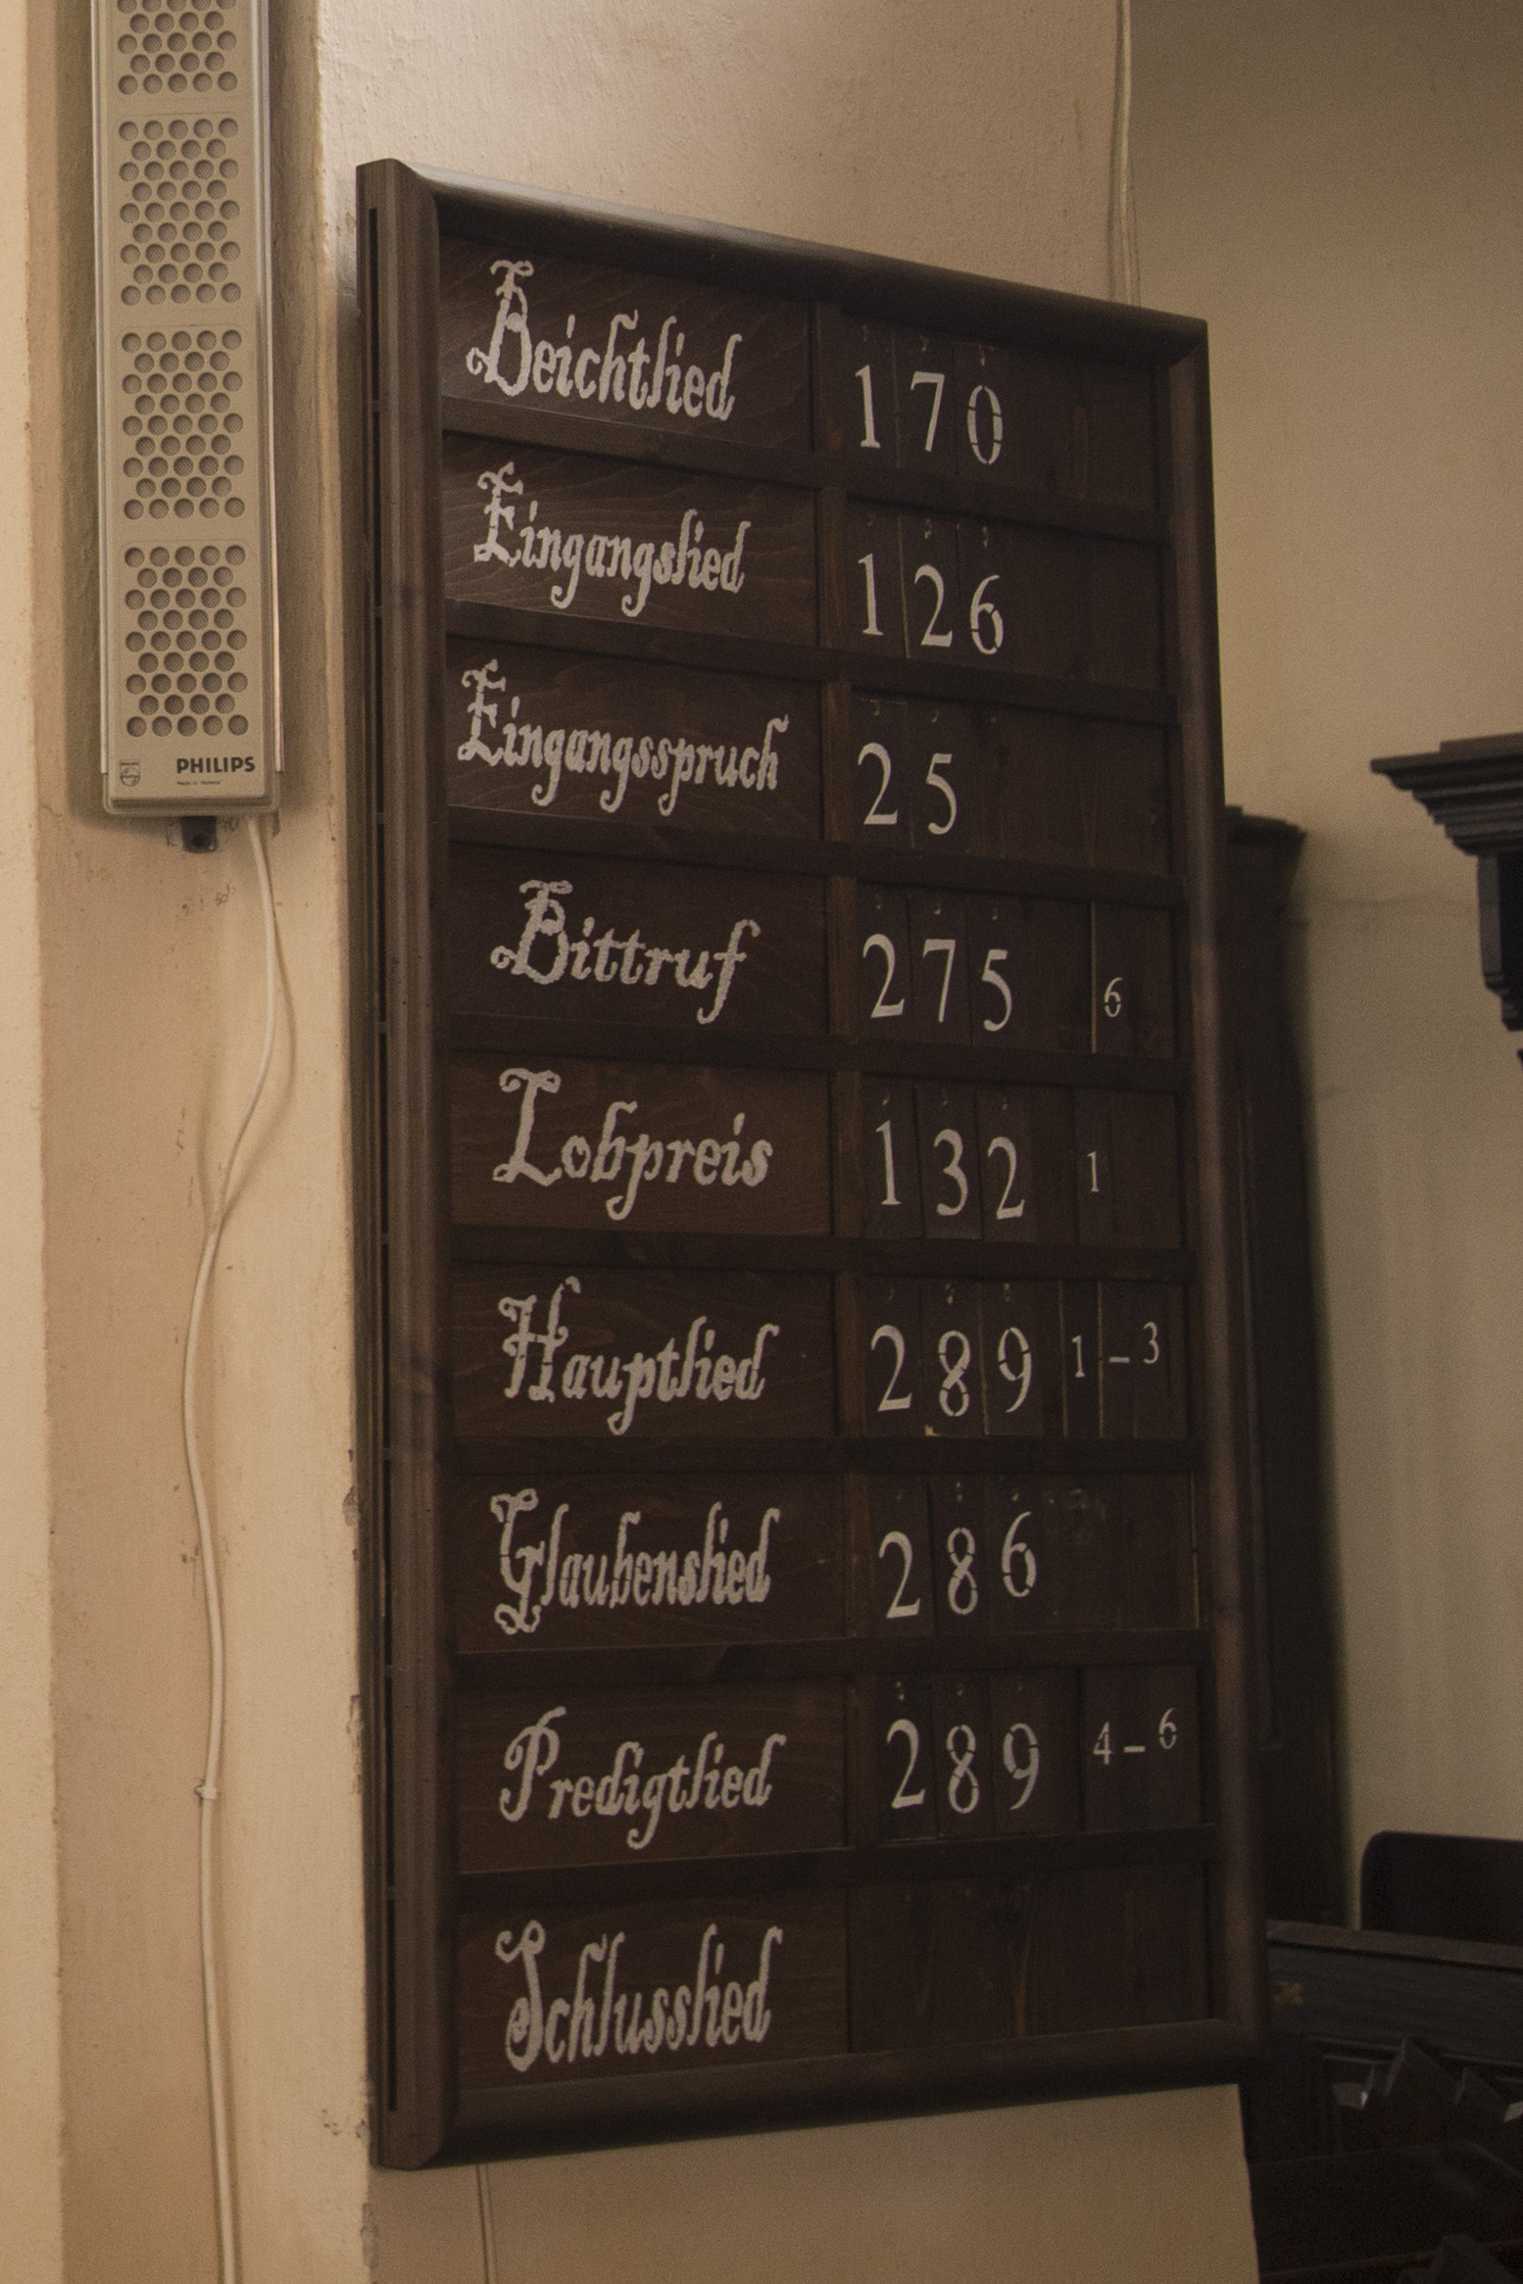 Beichtlied 170
Eingangslied 126
Eingangsspruch 25
Bittruf 275 6
Lobpreis 132 1
Hauptlied 289 1-3
Glaubenslied 286
Predigtlied 289 4-6
Schlusslied
PHILIPS